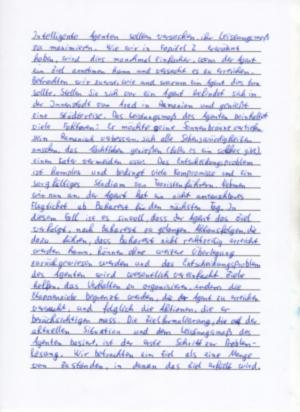 Intelligente Agenten sollten versuchen, ihr Leistungsmaß
zu maximieren. Wie wir in Kapitel 2 erwähnt
haben, wird dies manchmal einfacher, wenn der Agent
ein Ziel annehmen kann und versucht es zu erreichen.
Betrachten wir zuerst, wie und warum ein Agent dies tun
sollte. Stellen Sie sich vor ein Agent befindet sich in
der Innenstadt von Arad in Rumänien und genießt
eine Städtereise. Das Leistungsmaß des Agenten beinhaltet
viele Faktoren: Er möchte seine Sonnenbräune vertiefen
sein Rumänisch verbessern, sich alle Sehenswürdigkeiten
ansehen, das Nachtleben genießen (falls es ein solches gibt)
einen Kater vermeiden usw. Das Entscheidungsproblem
ist komplex und bedingt viele Kompromisse und ein
sorgfältiges Studium von Reiseführern. Nehmen
wir nun an der Agent hat ein nicht umtauschbares
Flugticket ab Bukarest für den nächsten Tag. In
diesem Fall ist es sinnvoll, dass der Agent das Ziel
verfolgt, nach Bukarest zu gelangen. Aktionsfolgen, die
dazu führen, dass Bukarest nicht rechtzeitig erreicht
werden kann, können ohne weitere Überlegung
zurückgewiesen werden und das Entscheidungsproblem
des Agenten wird wesentlich vereinfacht. Ziele
helfen, das Verhalten zu organisieren, indem die
begrenzt werden, die der Agent zu erreichen
versucht, und folglich die Aktionen, die er
berücksichtigen muss. Die Zielformulierung, die auf der
aktuellen Situation und dem Leistungsmaß des
Agenten basiert, ist der erste Schritt zur Problem-
lösung. Wir betrachten ein Ziel als eine Menge
von Zuständen, in denen das Ziel erfüllt wird.